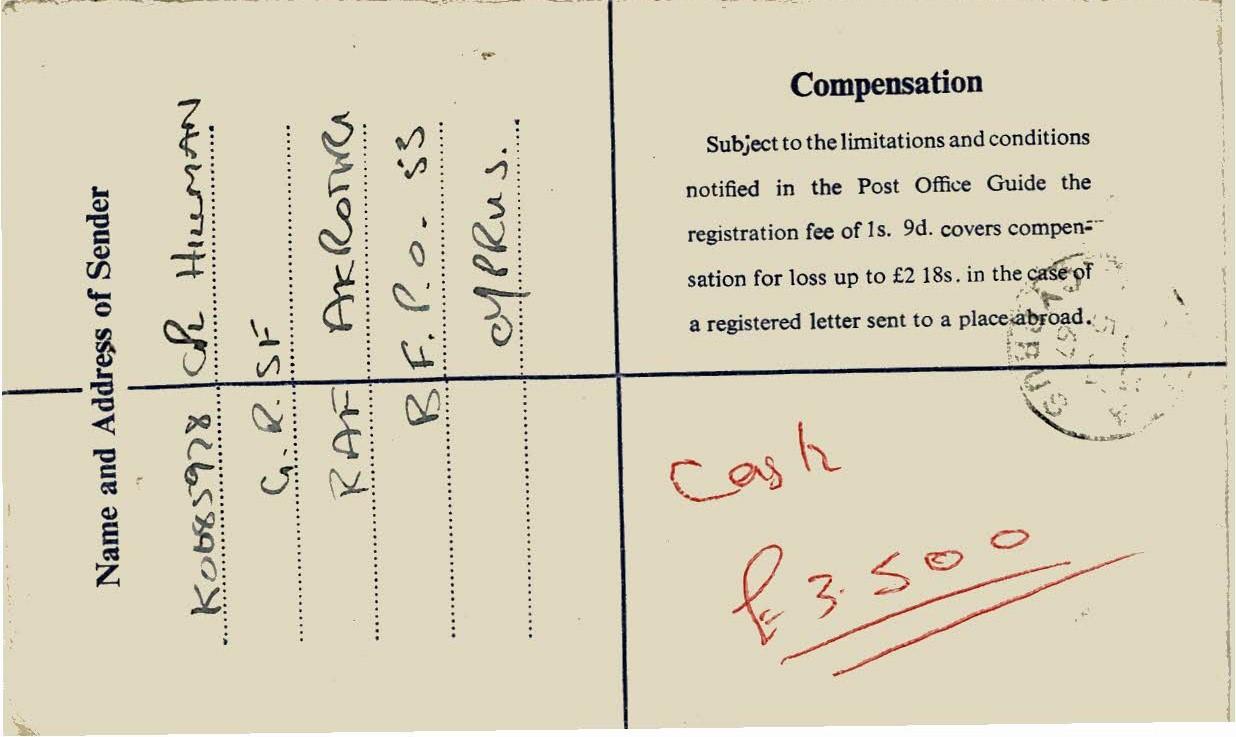 Name and Address of Sender
K0685978 CPL HILLMAN
G.R. SF
RAF AKROTIRI
B F.P.O. 53
CYPRUS.
Compensation
Subject to the limitations and conditions
notified in the Post Office Guide the
registration fee of 1s. 9d. covers compen-
sation for loss up to £2 18s. in the case of
a registered letter sent to a place abroad.
CYPRUS
67
Cash
£3.500